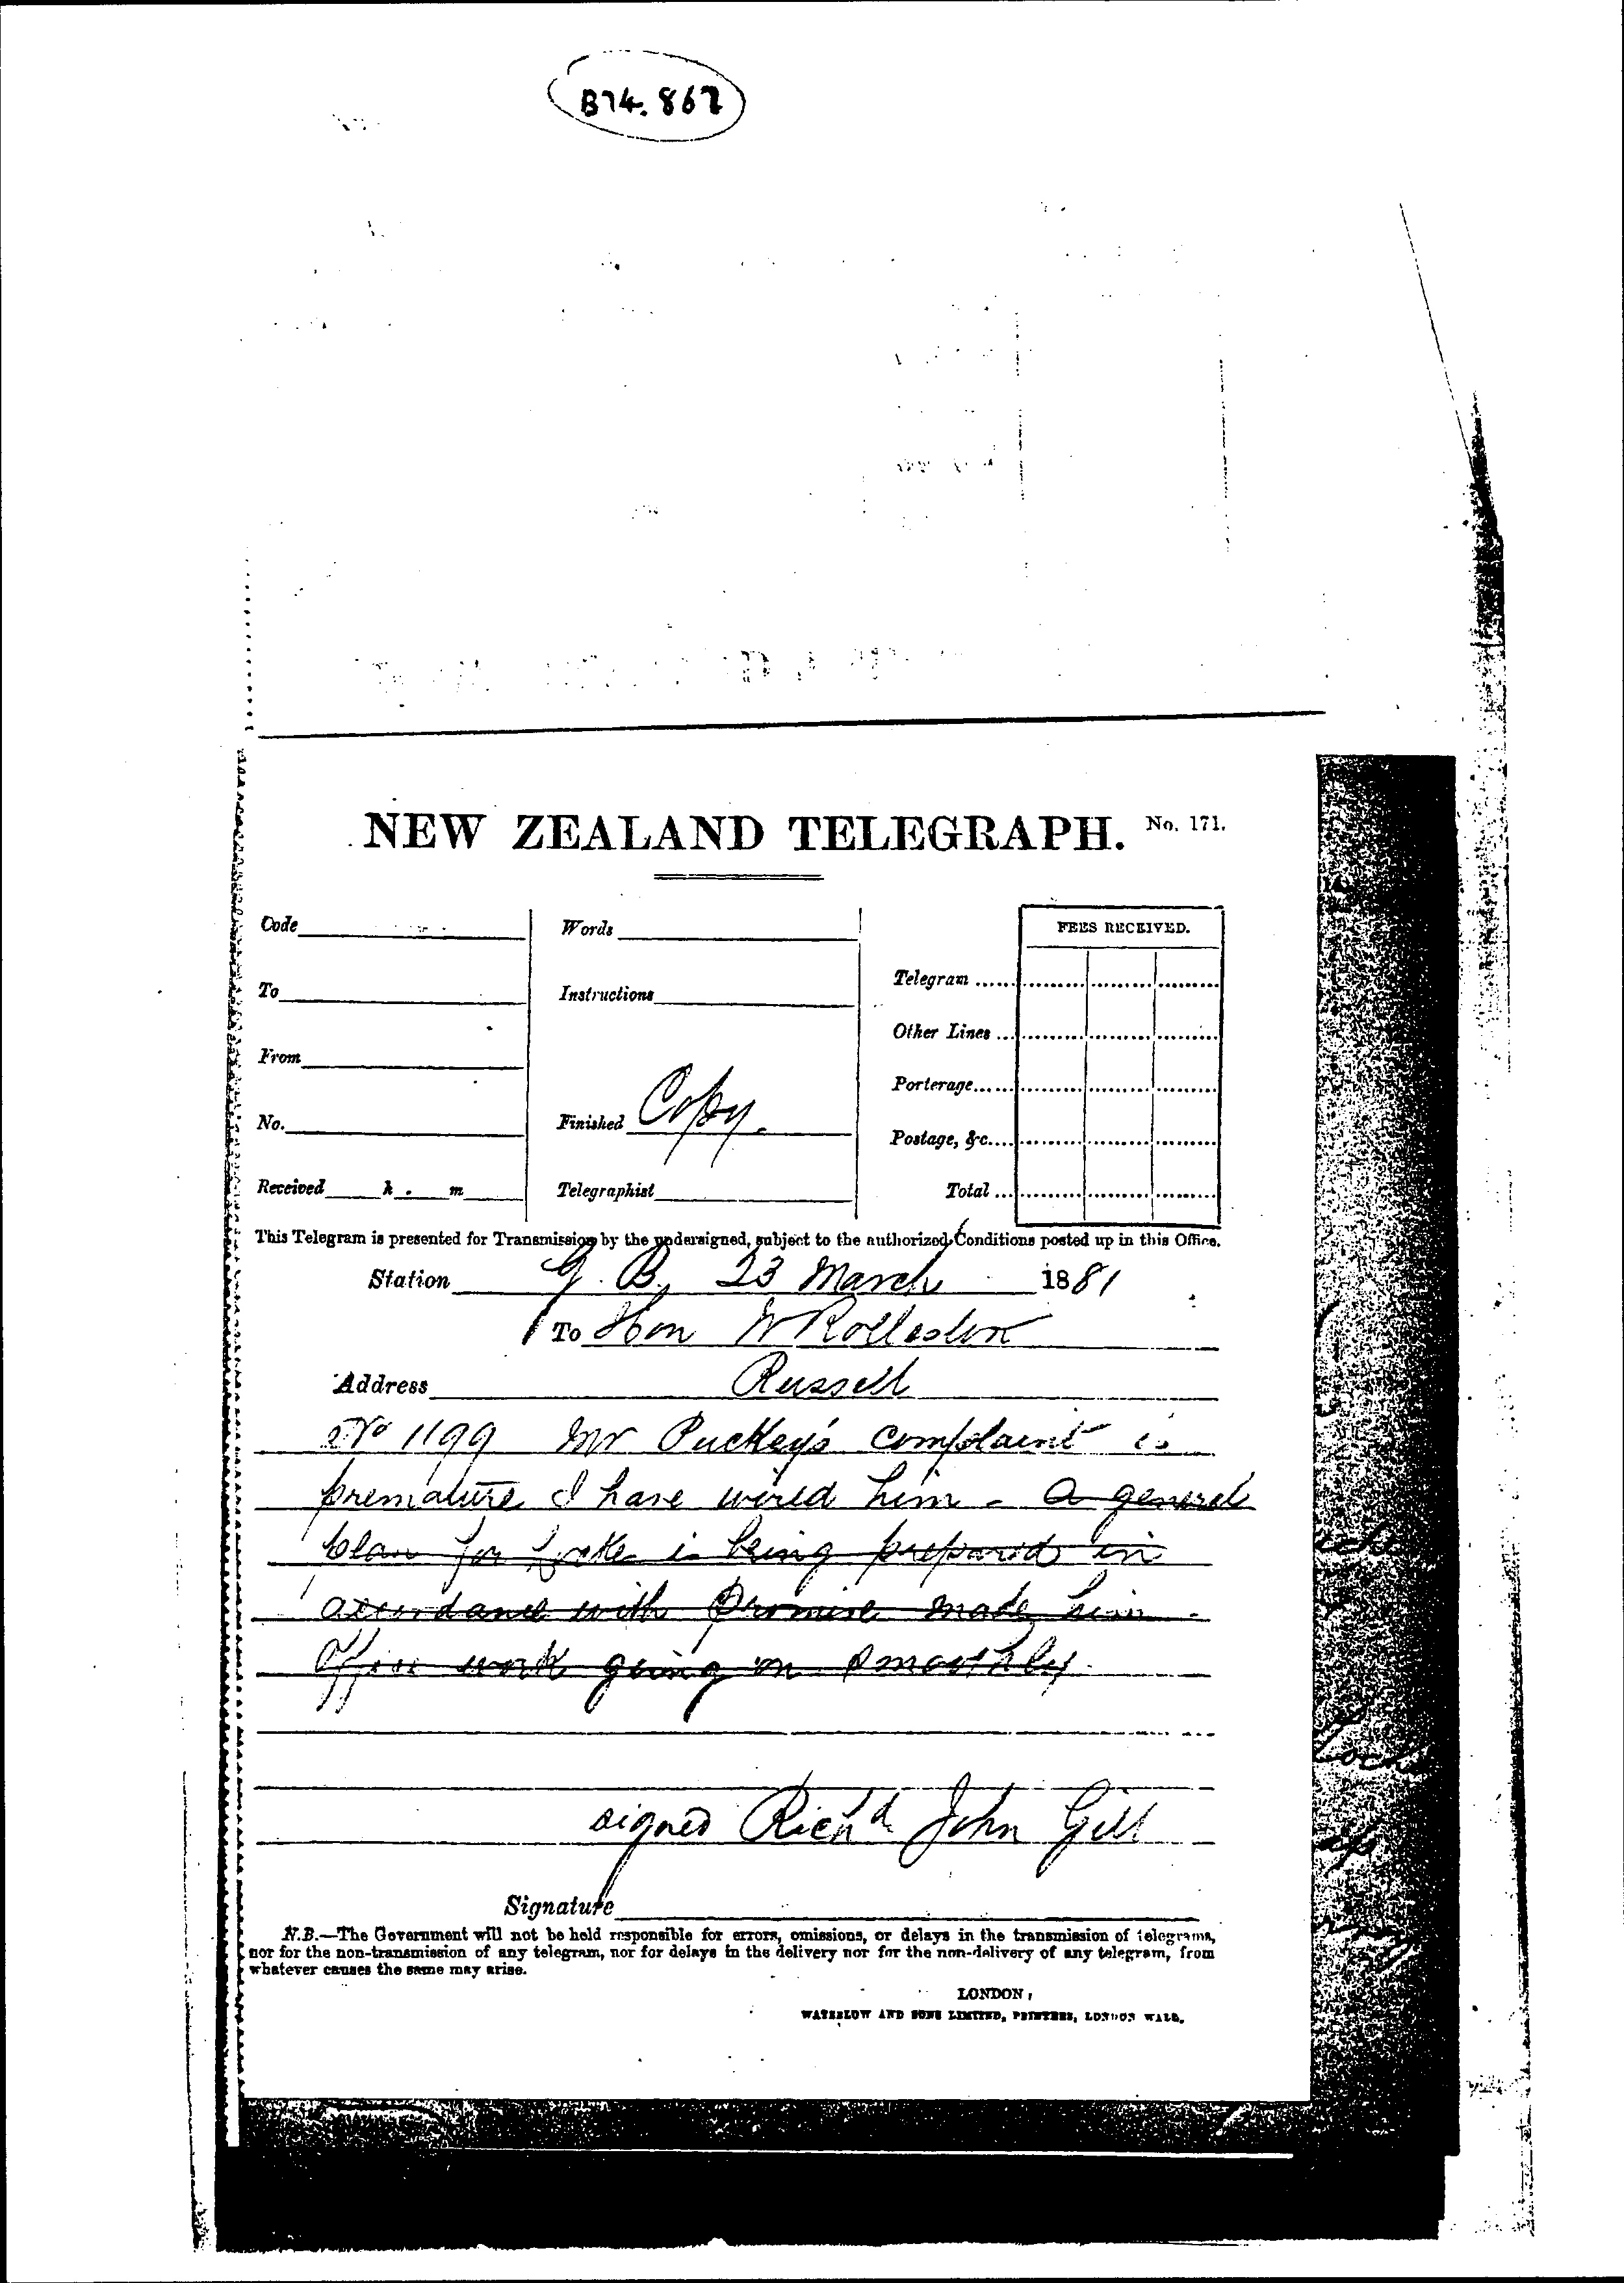 B74.867
NEW ZEALAND TELEGRAPH. No. 171.
Code
To
From
No.
Received h. m
Words
Instructions
Finished Copy.
Telegraphist
FEES RECEIVED.
Telegram ......
Other Lines ...
Porterage......
Postage, &c....
Total ...
This Telegram is presented for Transmission by the undersigned, subject to the authorized Conditions posted up in this Office.
Station G. B, 23 March 1881
To Hon W Rolleston
Address Russell
No 1199 Mr Puckey's complaint is
premature I have wired him - A general
plan for Locke is being prepared in
accordance with promise made him -
Office work going on smoothly.
signed Richd John Gill
Signature
N.B.—The Government will not be held responsible for errors, omissions, or delays in the transmission of telegrams,
nor for the non-transmission of any telegram, nor for delays in the delivery nor for the non-delivery of any telegram, from
whatever causes the same may arise.
LONDON:
WATERLOW AND SONS LIMITED, PRINTERS, LONDON WALL.